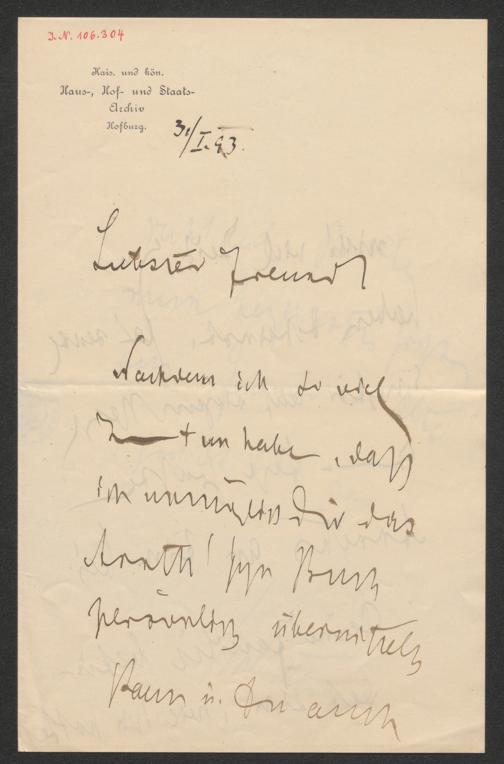 J.N. 106.304
Kais. und kön.
Haus-, Hof- und Staats-
Archiv
Hofburg.
3./I. 93.
Liebster Freund!
Nachdem ich so viel
zu tun habe, daß
ich unmöglich Dir das
Arneth'sche Buch
persönlich übermitteln
kann u. Du auch